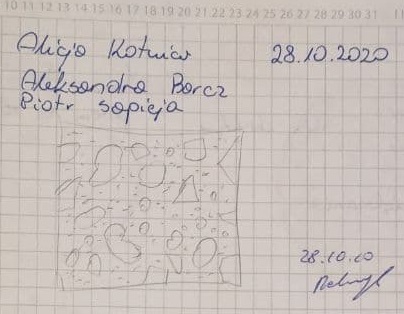 10 11 12 13 14 15 16 17 18 19 20 21 22 23 24 25 26 27 28 29 30 31
Alicja Kotwica 28.10.2020
Aleksandra Borcz
Piotr sapieja
28.10.20